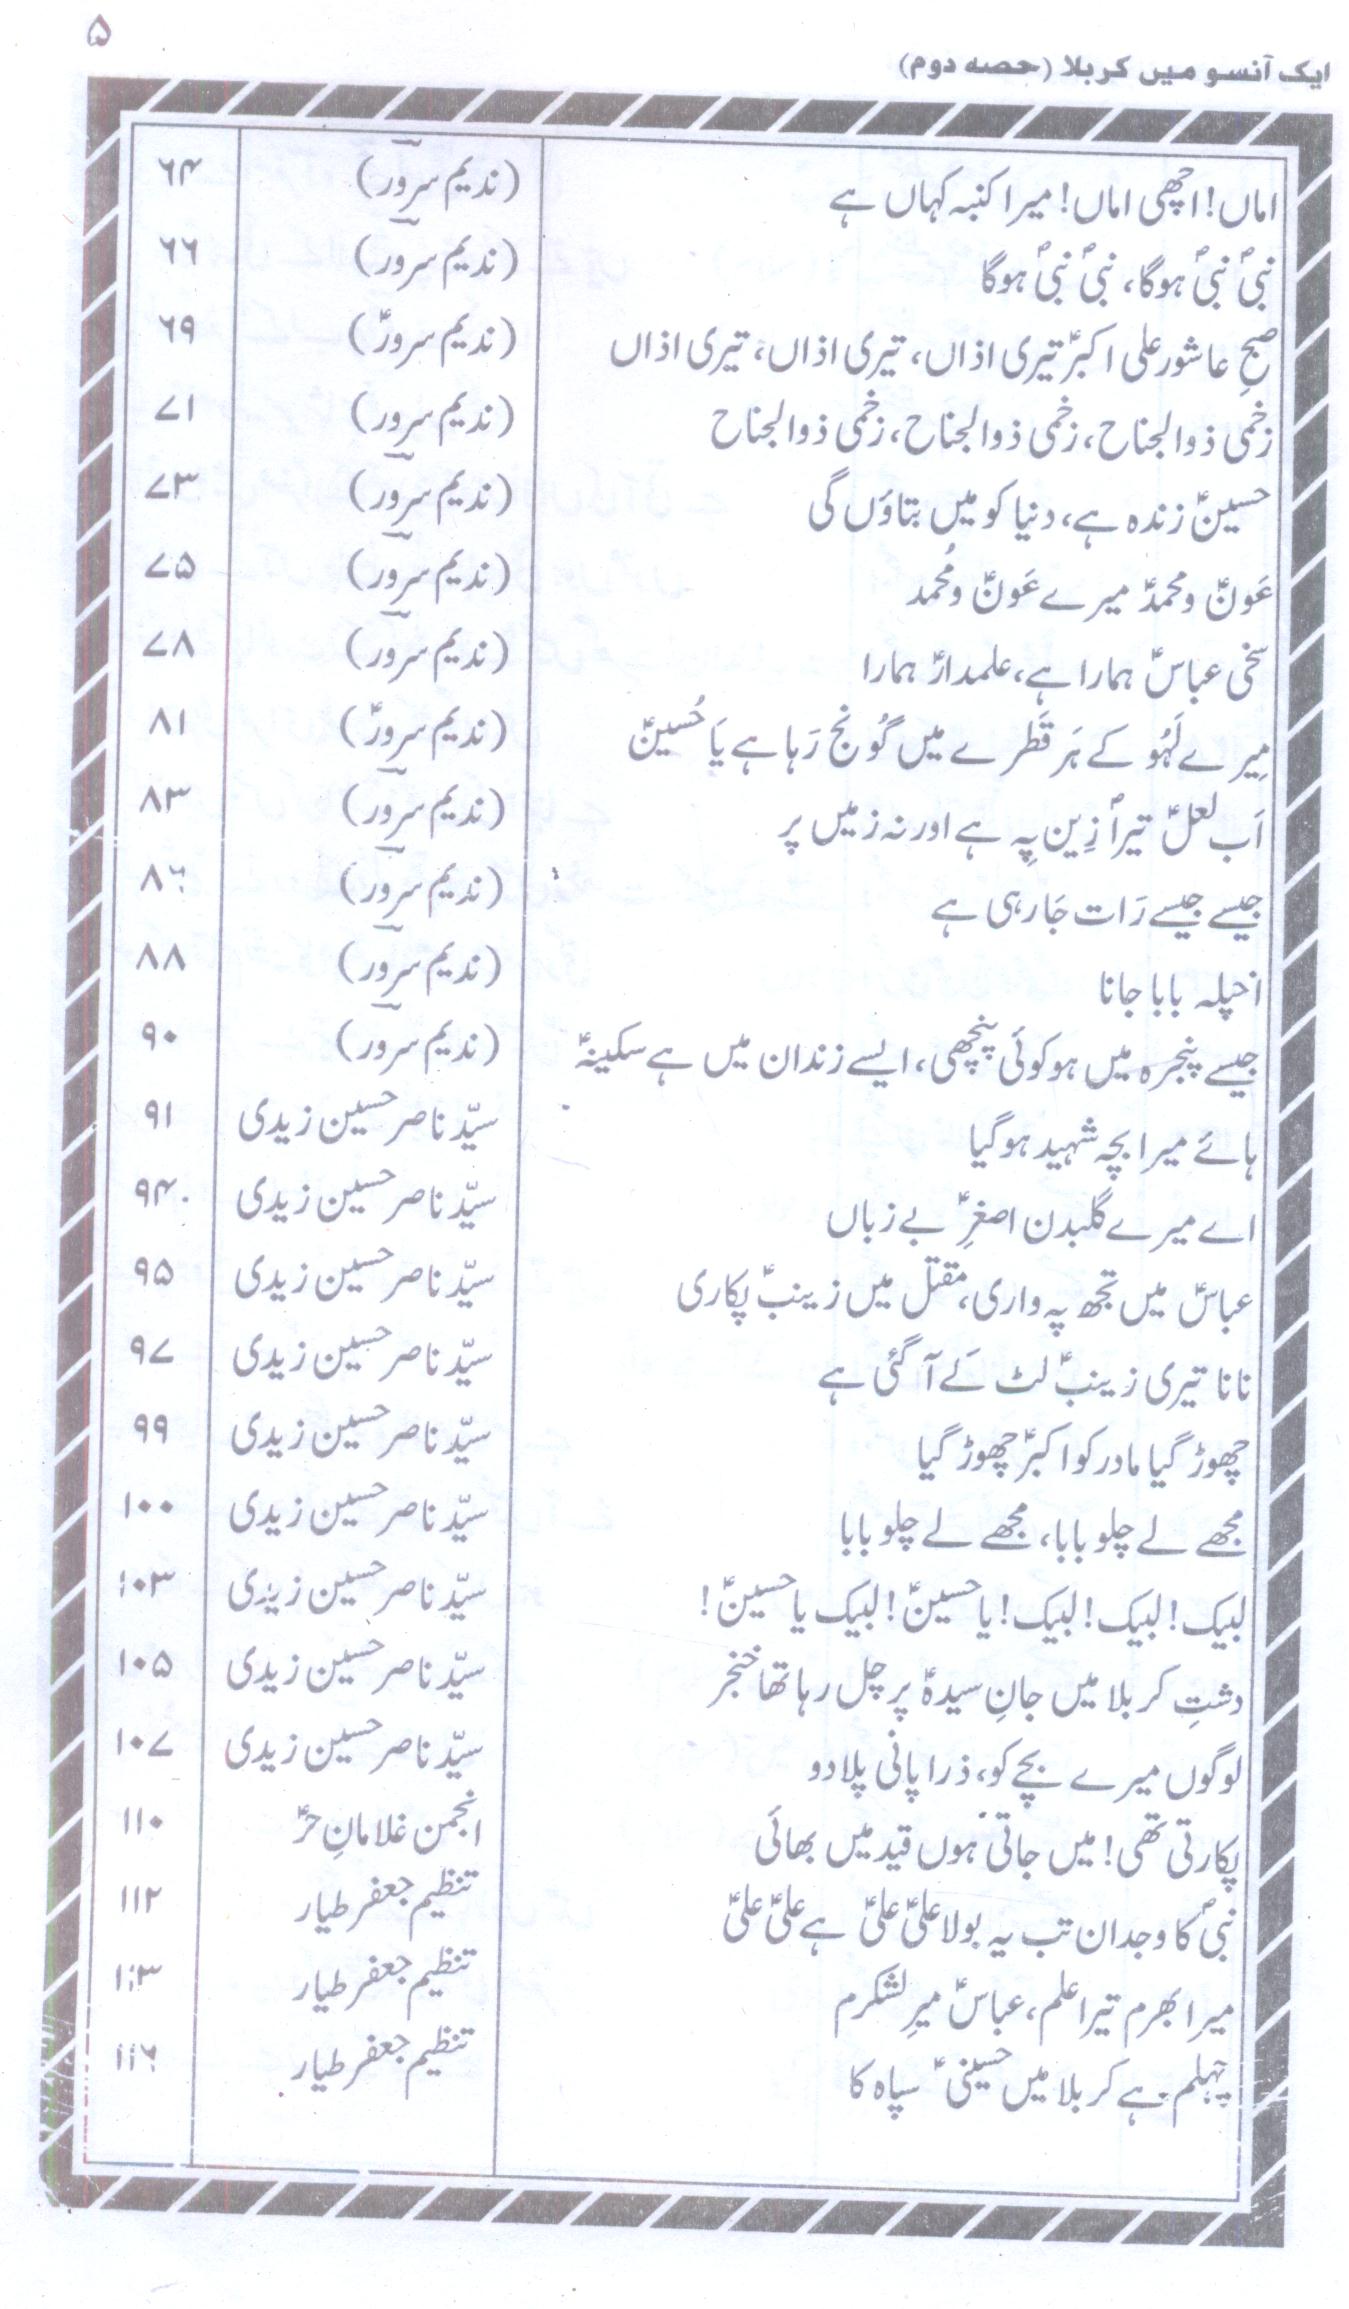 ایک آنسو میں کربلا (حصہ دوم) ۵
اماں! اچھی اماں! میرا کنبہ کہاں ہے (ندیم سرور) ۶۴
نبیؐ نبیؐ ہوگا، نبیؐ نبیؐ ہوگا (ندیم سرور) ۶۶
صبحِ عاشور علی اکبرؑ تیری اذاں، تیری اذاں، تیری اذاں (ندیم سرور) ۶۹
زخمی ذوالجناح، زخمی ذوالجناح، زخمی ذوالجناح (ندیم سرور) ۷۱
حسینؑ زندہ ہے، دنیا کو میں بتاؤں گی (ندیم سرور) ۷۳
عَونؑ و محمدؑ میرے عَونؑ و مُحمد (ندیم سرور) ۷۵
سخی عباسؑ ہمارا ہے، علمدارؑ ہمارا (ندیم سرور) ۷۸
مِیرے لَہُو کے ہَر قَطرے میں گُونج رَہا ہے یَا حُسینؑ (ندیم سرور) ۸۱
اَب لعلؑ تیراؑ زِین پِہ ہے اور نہ زمیں پر (ندیم سرور) ۸۳
جیسے جیسے رَات جَا رہی ہے (ندیم سرور) ۸۶
اَچپلہ بابا جانا (ندیم سرور) ۸۸
جیسے پنجرہ میں ہو کوئی پنچھی، ایسے زندان میں ہے سکینہؑ (ندیم سرور) ۹۰
ہائے میرا بچہ شہید ہوگیا سیّد ناصر حسین زیدی ۹۱
اے میرے گلبدن اصغرِؑ بے زباں سیّد ناصر حسین زیدی ۹۴
عباسؑ میں تجھ پہ واری، مقتل میں زینبؑ پکاری سیّد ناصر حسین زیدی ۹۵
نانا تیری زینبؑ لٹ کے آگئی ہے سیّد ناصر حسین زیدی ۹۷
چھوڑ گیا مادر کو اکبرؑ چھوڑ گیا سیّد ناصر حسین زیدی ۹۹
مجھے لے چلو بابا، مجھے لے چلو بابا سیّد ناصر حسین زیدی ۱۰۰
لبیک! لبیک! لبیک! یا حسینؑ! لبیک یا حسینؑ! سیّد ناصر حسین زیدی ۱۰۳
دشتِ کربلا میں جانِ سیدہؑ پر چل رہا تھا خنجر سیّد ناصر حسین زیدی ۱۰۵
لوگوں میرے بچے کو، ذرا پانی پلا دو سیّد ناصر حسین زیدی ۱۰۷
پکارتی تھی! میں جاتی ہوں قید میں بھائی انجمن غلامانِ حرؑ ۱۱۰
نبیؐ کا وجدان تب یہ بولا علیؑ علیؑ ہے علیؑ علیؑ تنظیم جعفر طیار ۱۱۲
میرا بھرم تیرا علم، عباسؑ میرِ لشکرم تنظیم جعفر طیار ۱۱۳
چہلم ہے کربلا میں حسینیؑ سپاہ کا تنظیم جعفر طیار ۱۱۶